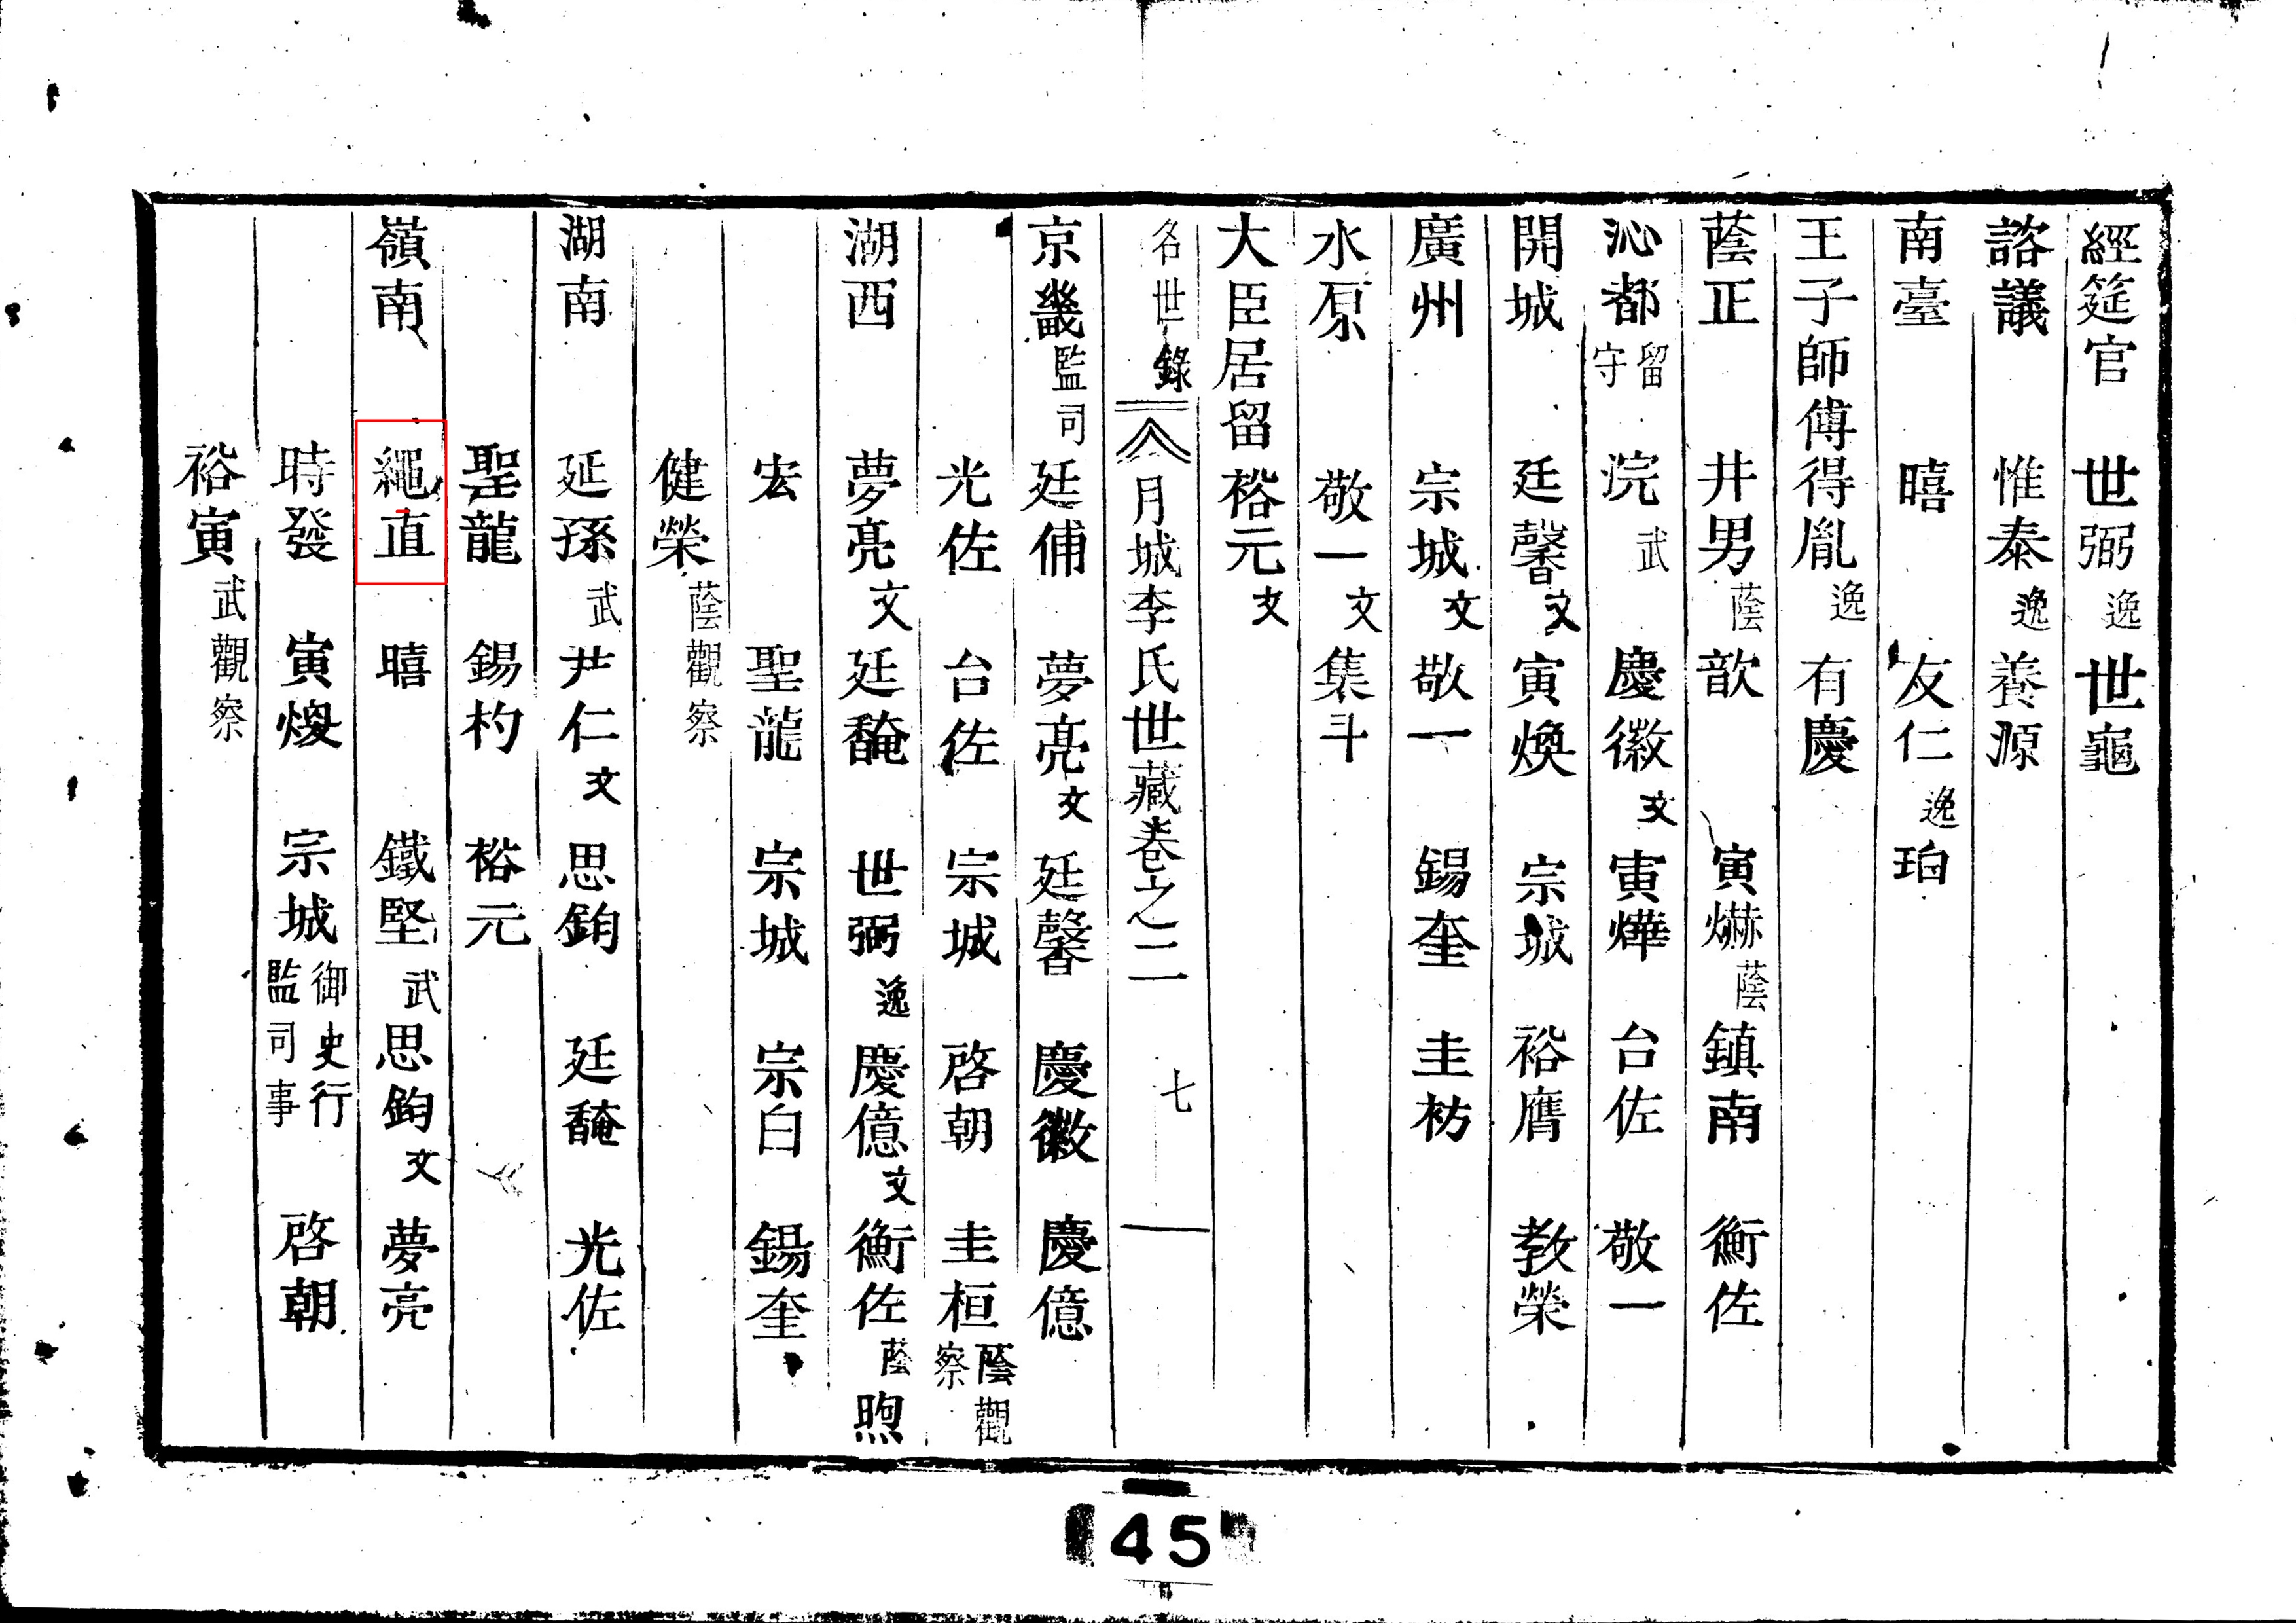 經筵官 世弼逸 世龜
諮議 惟泰逸 養源
南臺 暿 友仁逸 珀
王子師傅得胤逸 有慶
蔭正 井男蔭 歆 寅爀蔭 鎮南 衡佐
沁都留守 浣武 慶徽文 寅燁 台佐 敬一
開城 廷馨文 寅煥 宗城 裕膺 教榮
廣州 宗城文 敬一 錫奎 圭枋
水原 敬一文 集斗
大臣居留 裕元文
名世錄 月城李氏世藏卷之二 七
京畿監司 廷俌 夢亮文 廷馨 慶徽 慶億
光佐 台佐 宗城 啓朝 圭桓蔭觀察
湖西 夢亮文 廷馣 世弼逸 慶億文 衡佐蔭 煦
宏 聖龍 宗城 宗白 錫奎
健榮蔭觀察
湖南 延孫武 尹仁文 思鈞 廷馣 光佐
聖龍 錫杓 裕元
嶺南 繩直 暿 鐵堅武 思鈞文 夢亮
時發 寅煥 宗城御史行監司事 啓朝
裕寅武觀察
45